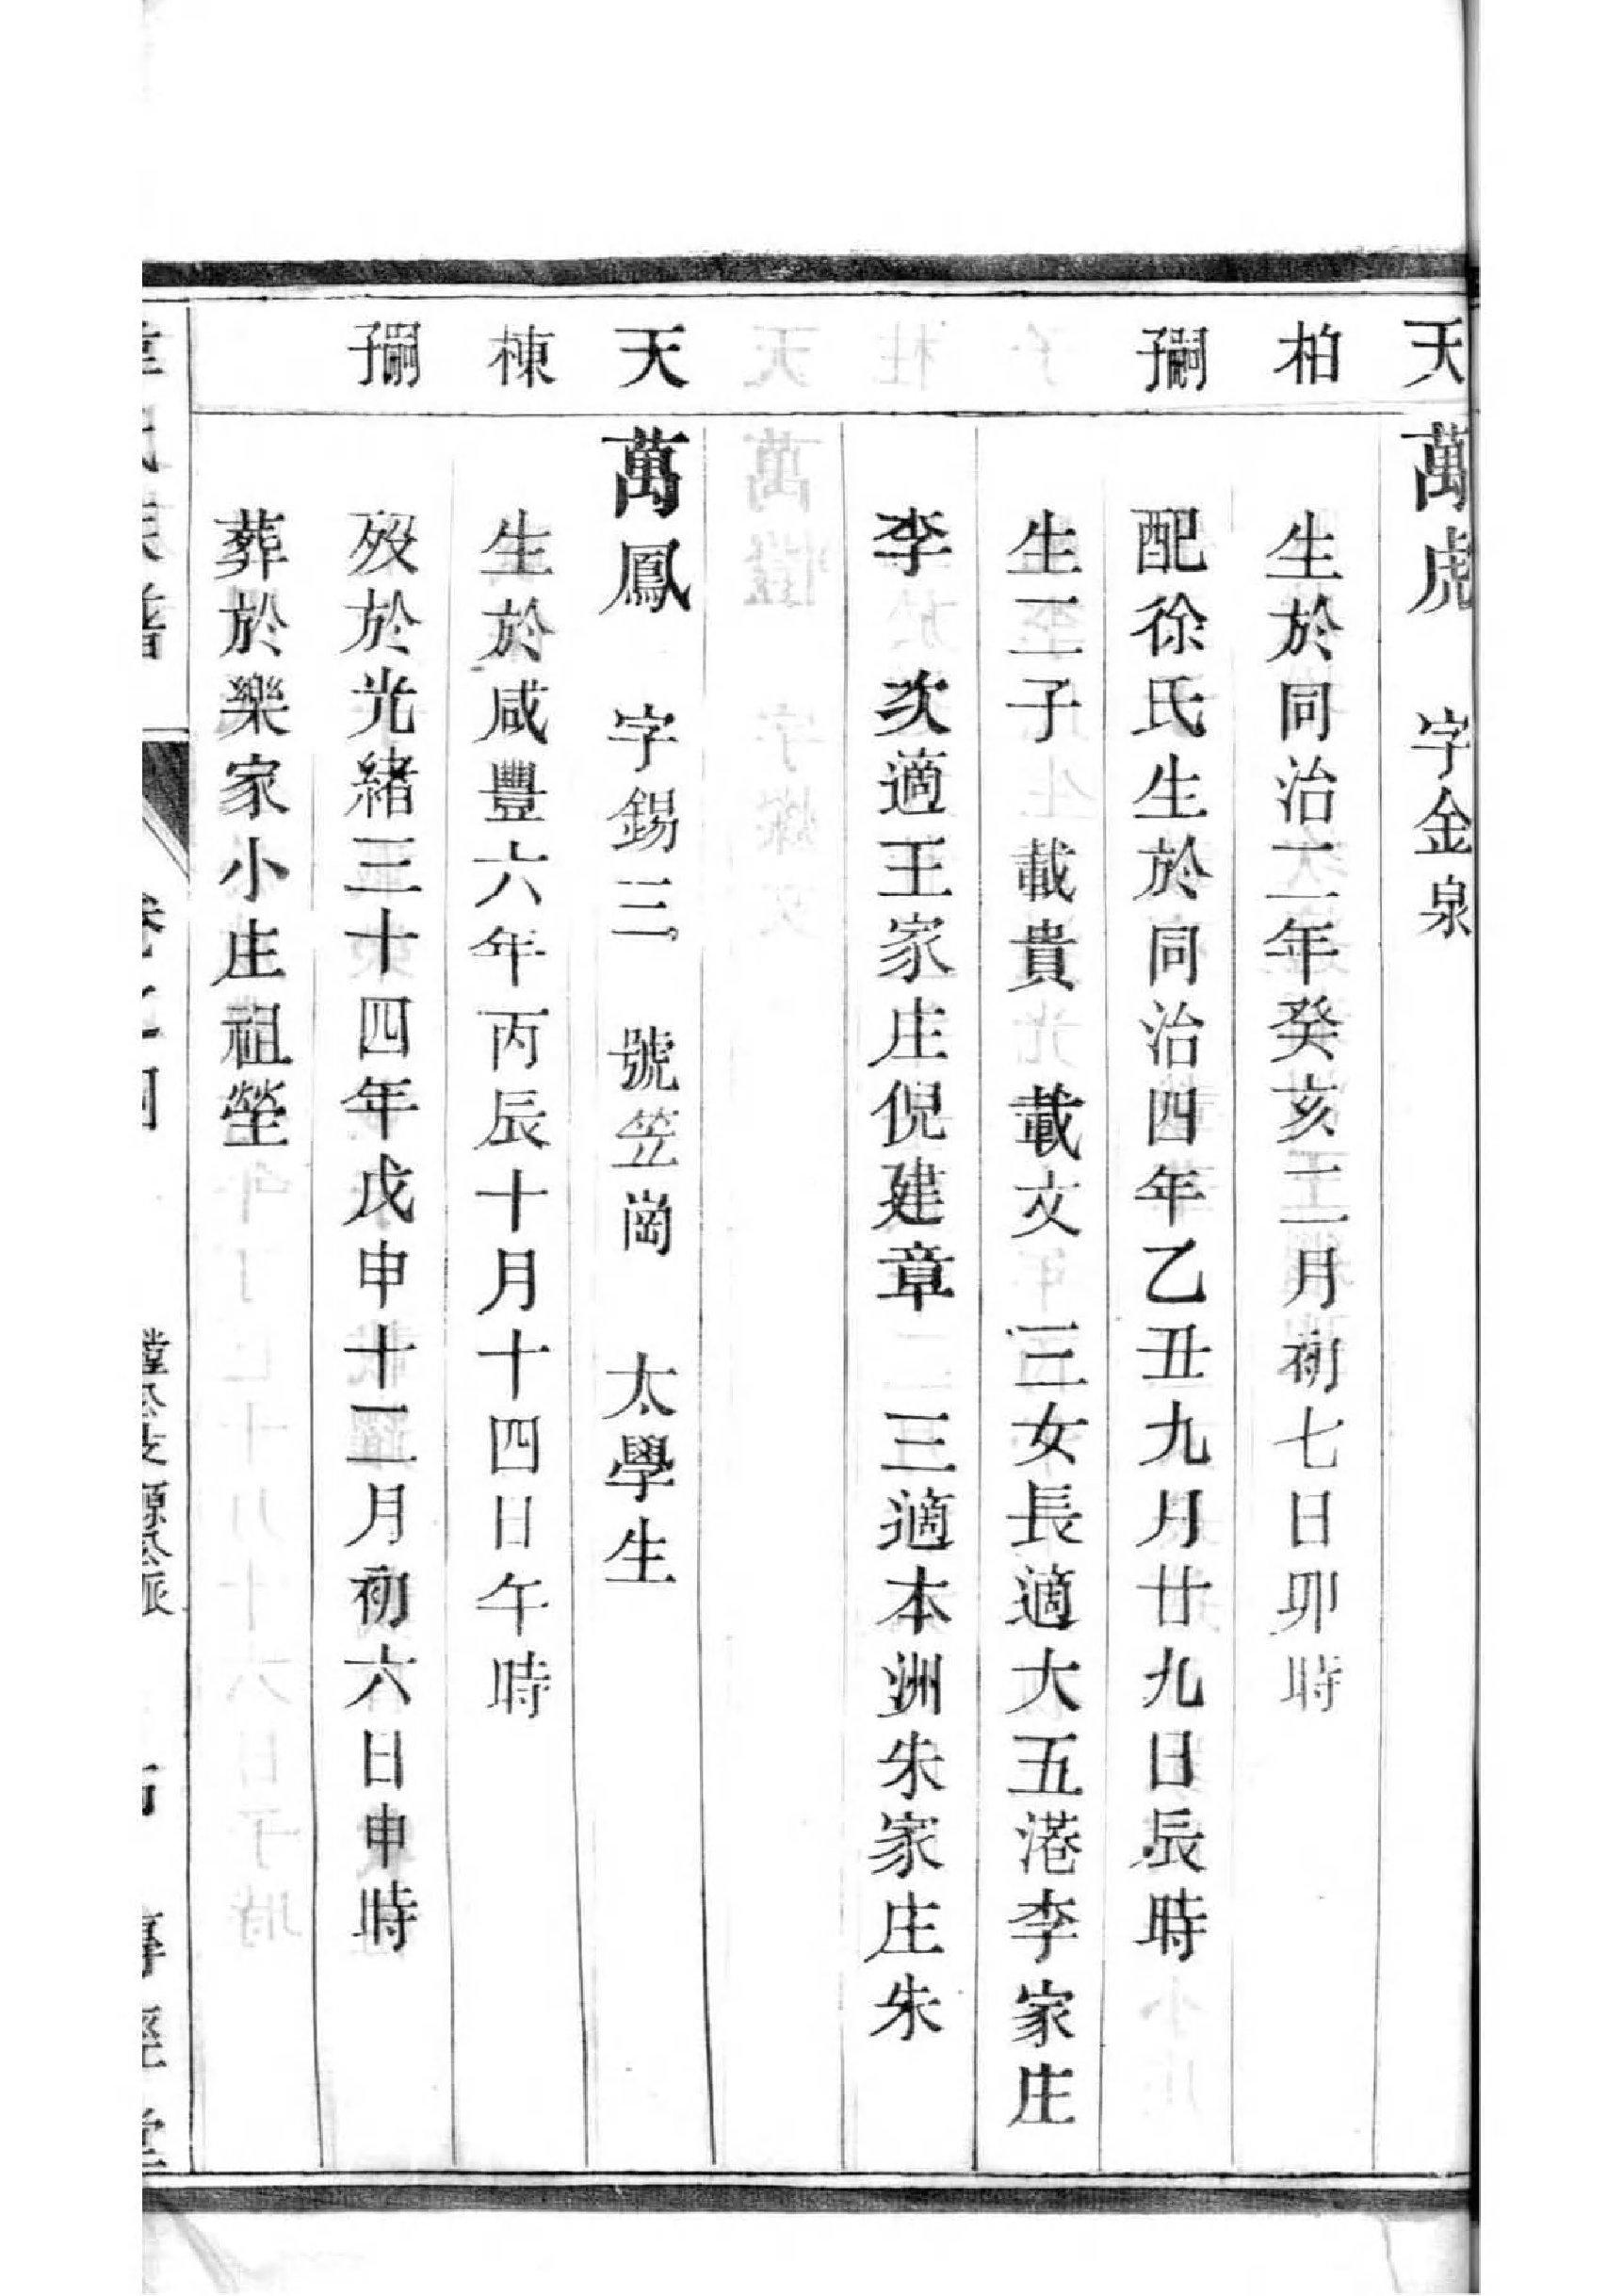 天 萬虎 字金泉
柏 生於同治二年癸亥二月初七日卯時
嗣子 配徐氏生於同治四年乙丑九月廿九日辰時
生二子 載貴 載文 三女長適大五港李家庄
李 次適王家庄倪建章 三適本洲朱家庄朱
天 萬鳳 字錫三 號笠崗 太學生
棟 生於咸豐六年丙辰十月十四日午時
嗣子 歿於光緒三十四年戊申十二月初六日申時
葬於樂家小庄祖塋
卷之四